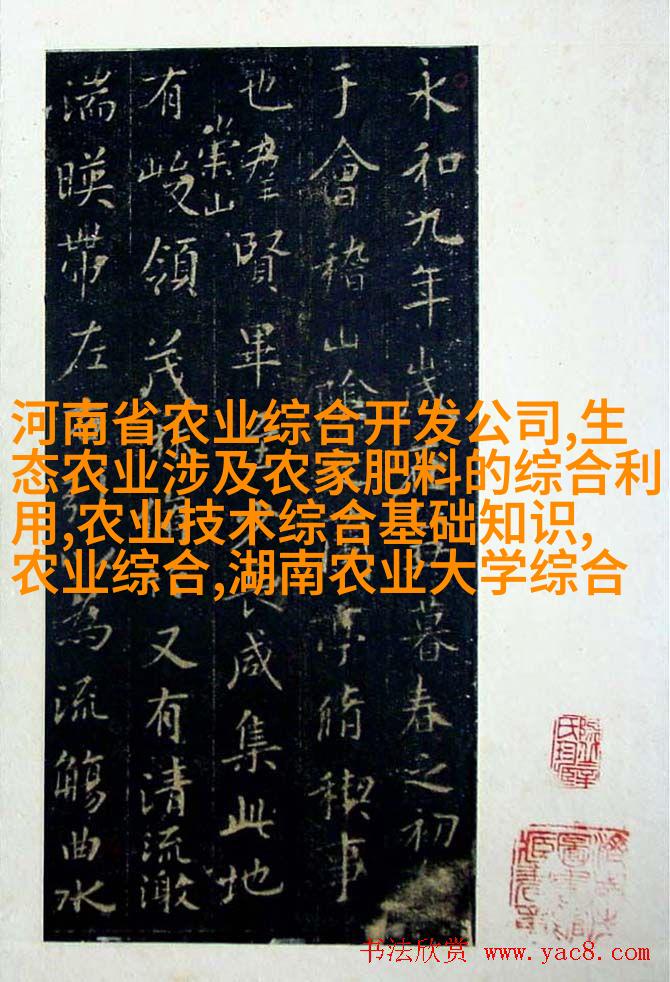 永和九年歲暮春之初
于會稽山陰亭脩禊事
也羣賢畢咸集此地
有崇山峻領茂又有清流激
湍暎帶左為流觴曲水
河南省农业综合开发公司,生
态农业涉及农家肥料的综合利
用,农业技术综合基础知识,
农业综合,湖南农业大学综合
书法欣赏 www.yac8.com